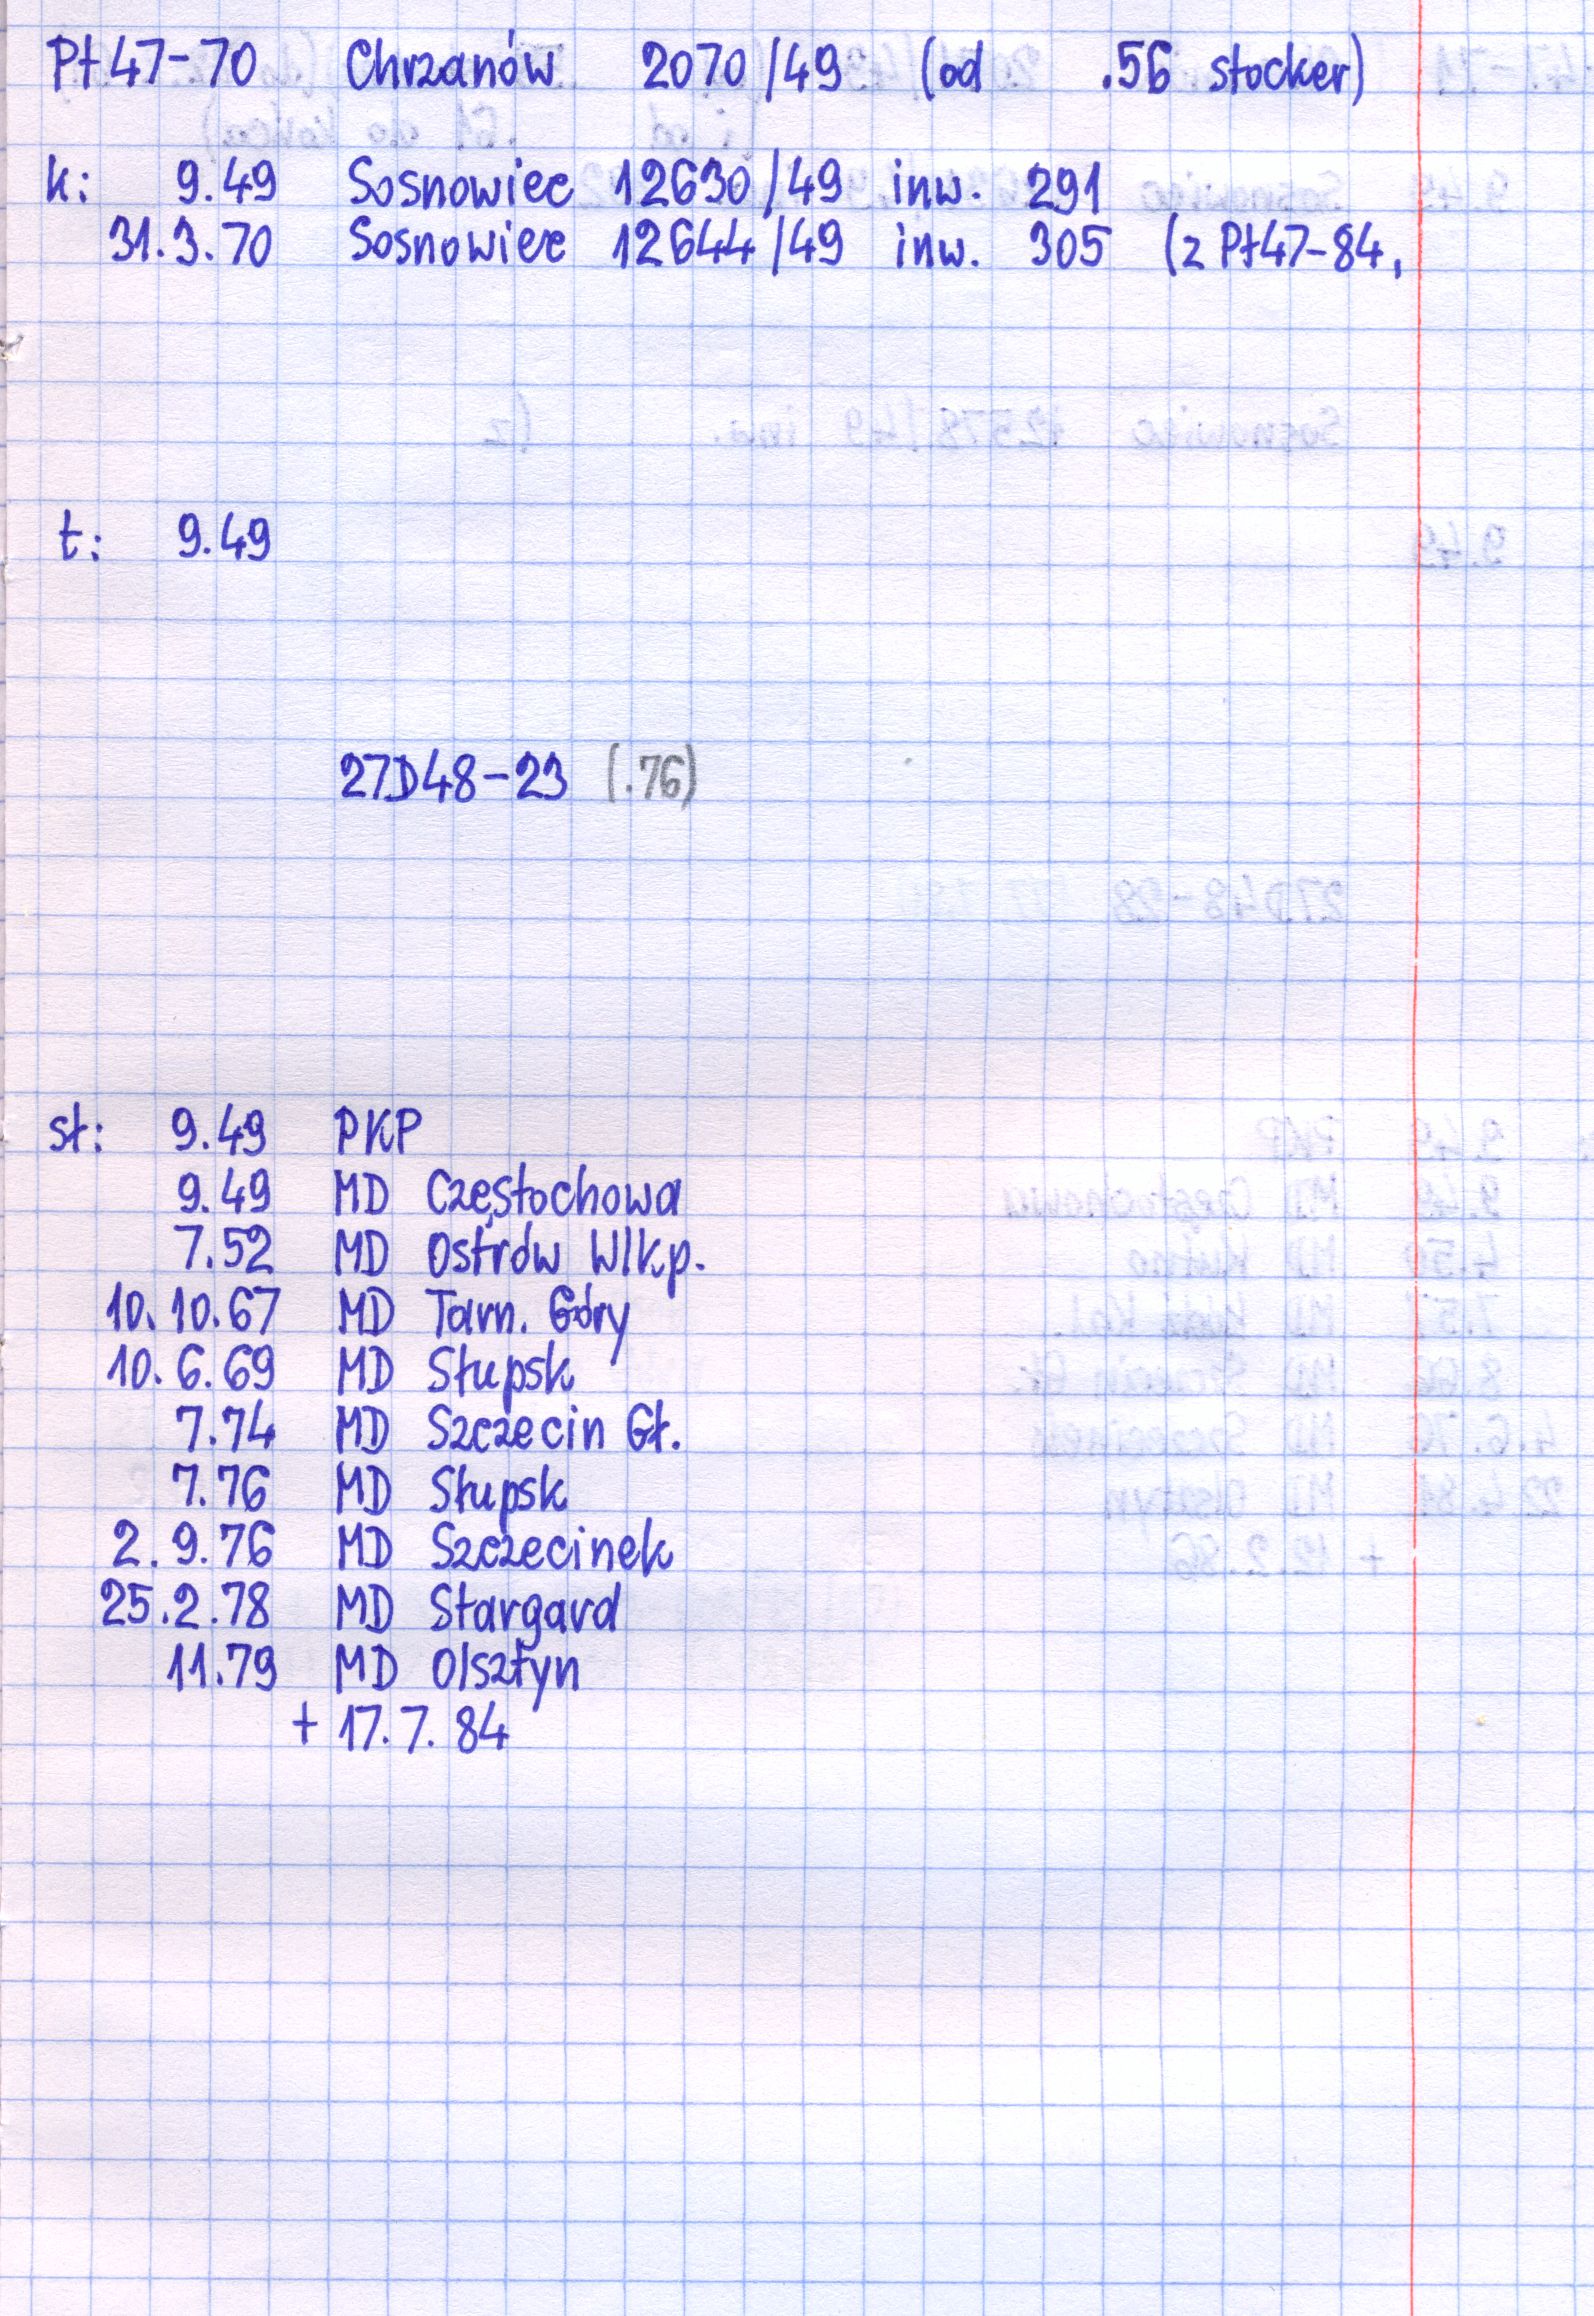 Pt47-70 Chrzanów 2070/49 (od .56 stocker)
k: 9.49 Sosnowiec 12630/49 inw. 291
31.3.70 Sosnowiec 12644/49 inw. 305 (z Pt47-84,
t: 9.49
27D48-23 (.76)
st: 9.49 PKP
9.49 MD Częstochowa
7.52 MD Ostrów Wlkp.
10.10.67 MD Tarn. Góry
10.6.69 MD Słupsk
7.74 MD Szczecin Gł.
7.76 MD Słupsk
2.9.76 MD Szczecinek
25.2.78 MD Stargard
11.79 MD Olsztyn
+ 17.7.84